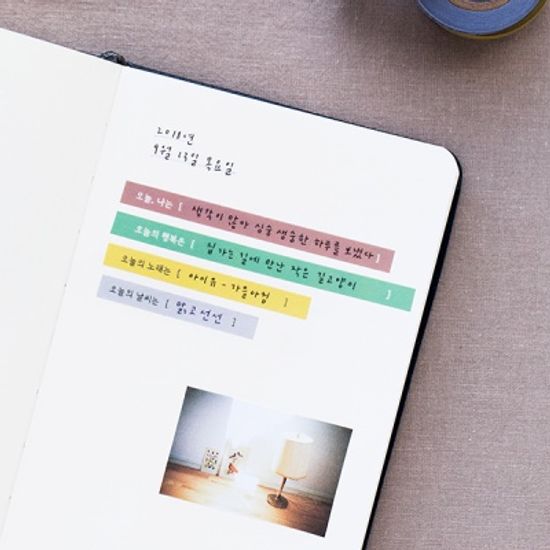 2018년
9월 13일 목요일
오늘, 나는 [ 생각이 많아 싱숭생숭한 하루를 보냈다 ]
오늘의 행복은 [ 집 가는 길에 만난 작은 길고양이 ]
오늘의 노래는 [ 아이유 - 가을아침 ]
오늘의 날씨는 [ 맑고 선선 ]